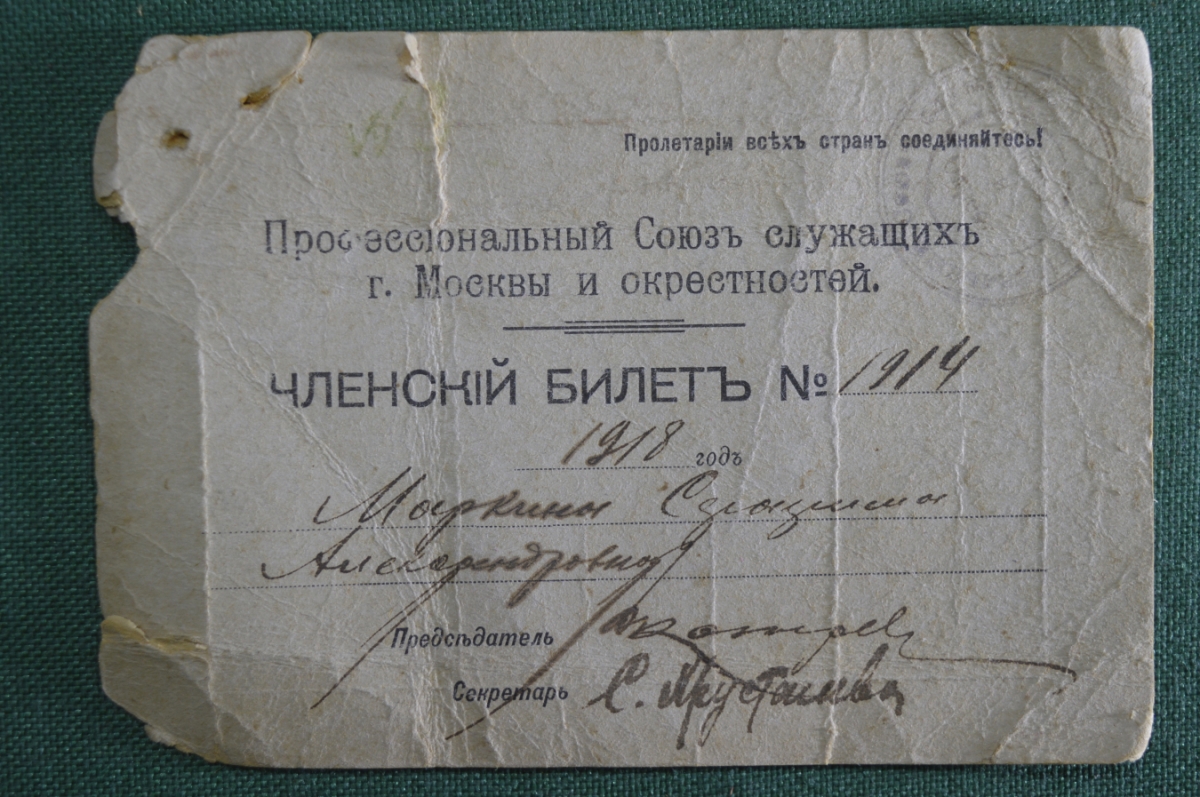 Пролетаріи всѣхъ странъ соединяйтесь!
Профессіональный Союзъ служащихъ
г. Москвы и окрестностей.
ЧЛЕНСКІЙ БИЛЕТЪ № 1914
1918 годъ
Маркина
Александровна
Предсѣдатель
Секретарь С.